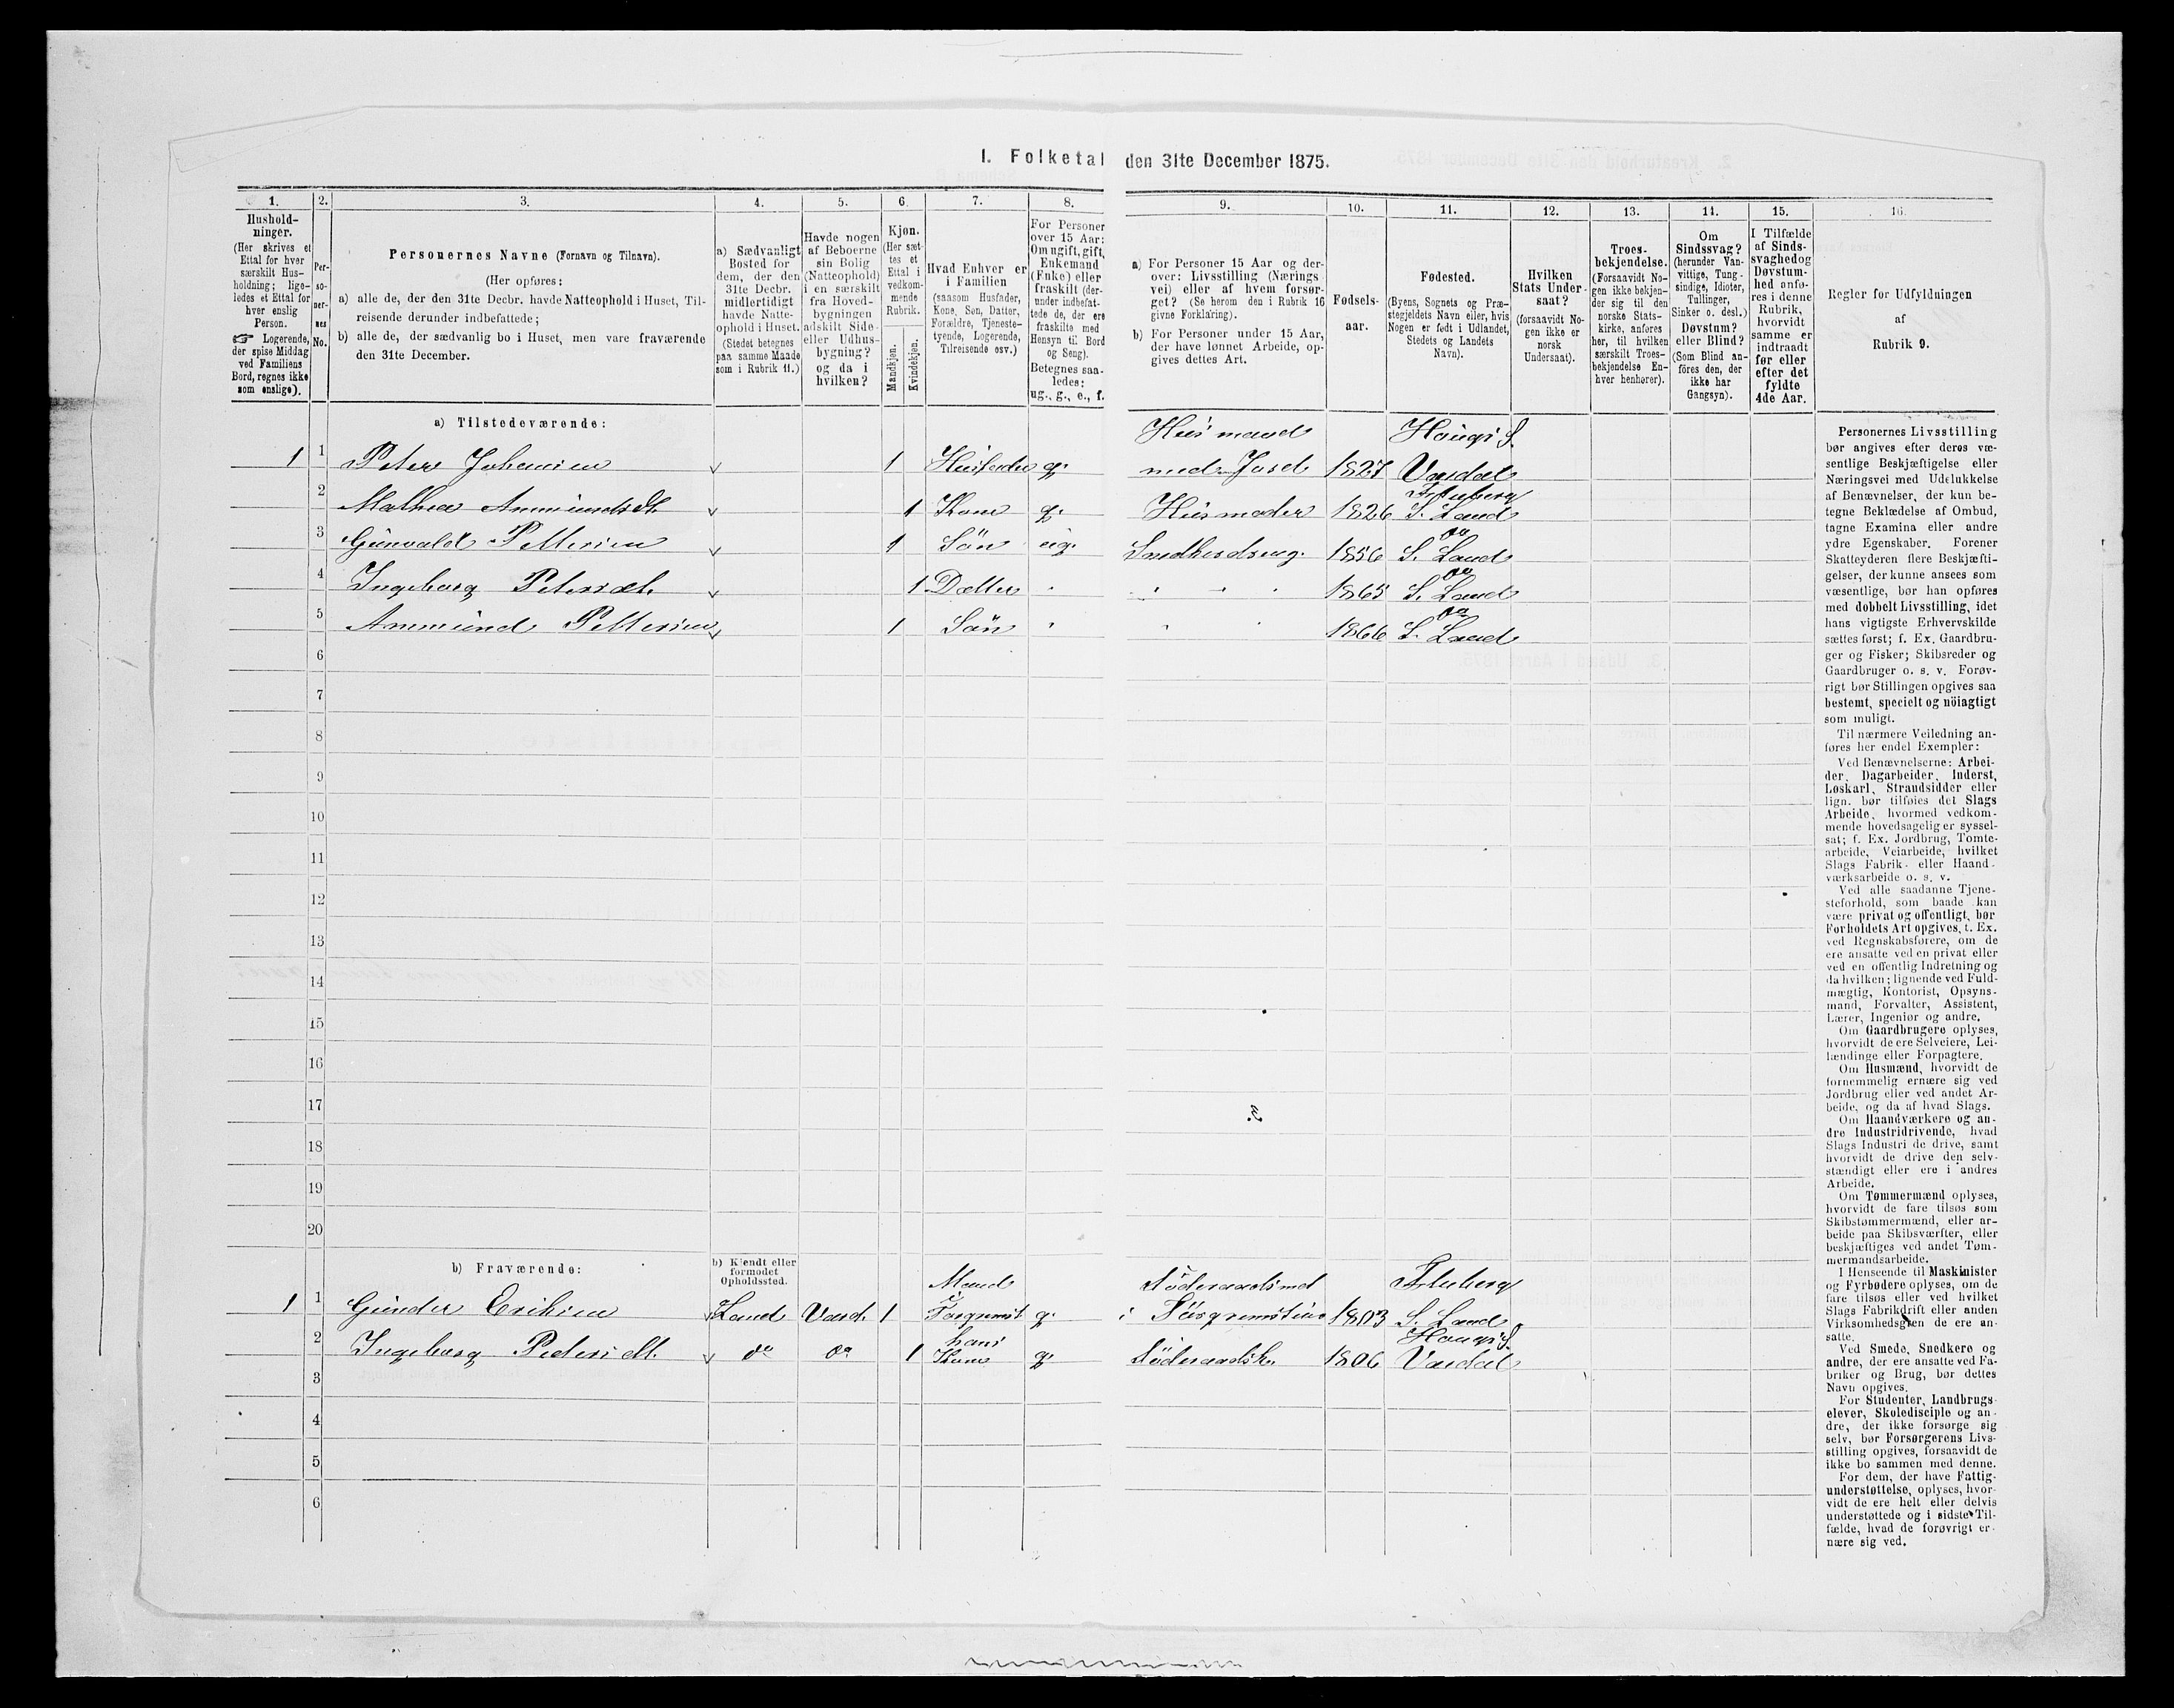 I. Folketal den 31te December 1875.
1.
2.
3.
4.
5.
6.
7.
8.
9.
10.
11.
12.
13.
14.
15.
16.
Hushold-
ninger.
(Her skrives et
Ettal for hver
særskilt Hus-
holdning; lige-
ledes et Ettal for
hver enslig
Person.
☞ Logerende,
der spise Middag
ved Familiens
Bord, regnes ikke
som enslige).
Per-
so-
ner-
nes
No.
Personernes Navne (Fornavn og Tilnavn).
(Her opføres:
a) alle de, der den 31te Decbr. havde Natteophold i Huset, Til-
reisende derunder indbefattede;
b) alle de, der sædvanlig bo i Huset, men vare fraværende
den 31te December.
a) Sædvanligt
Bosted for
dem, der den
31te Decbr.
midlertidigt
havde Natte-
ophold i Huset.
(Stedet betegnes
paa samme Maade
som i Rubrik 11.)
Havde nogen
af Beboerne
sin Bolig
(Natteophold)
i en særskilt
fra Hoved-
bygningen
adskilt Side-
eller Udhus-
bygning?
og da i
hvilken?
Kjøn.
(Her sæt-
tes et
Ettal i
vedkom-
mende
Rubrik.
Mandkjøn.
Kvindekjøn.
Hvad Enhver er
i Familien
(saasom Husfader,
Kone, Søn, Datter,
Forældre, Tjeneste-
tyende, Logerende,
Tilreisende osv.)
For Personer
over 15 Aar:
Om ugift, gift,
Enkemand
(Enke) eller
fraskilt (der-
under indbefat-
tede de, der ere
fraskilte med
Hensyn til Bord
og Seng).
Betegnes saa-
ledes:
ug., g., e., f.
a) For Personer 15 Aar og der-
over: Livsstilling (Nærings
vei) eller af hvem forsør-
get? (Se herom den i Rubrik 16
givne Forklaring).
b) For Personer under 15 Aar,
der have lønnet Arbeide, op-
gives dettes Art.
Fødsels-
aar.
Fødested.
(Byens, Sognets og Præ-
stegjeldets Navn eller, hvis
Nogen er født i Udlandet,
Stedets og Landets
Navn).
Hvilken
Stats Under-
saat?
(forsaavidt No-
gen ikke er
norsk
Undersaat).
Troes-
bekjendelse.
(Forsaavidt No-
gen ikke bekjen-
der sig til den
norske Stats-
kirke, anføres
her, til hvilken
særskilt Troes-
bekjendelse En-
hver henhører).
Om
Sindssvag?
(herunder Van-
vittige, Tung-
sindige, Idioter,
Tullinger,
Sinker o. desl.)
Døvstum?
eller Blind?
(Som Blind an-
föres den, der
ikke har
Gangsyn).
I Tilfælde
af Sinds-
svaghedog
Døvstum-
hed anfø-
res i denne
Rubrik,
hvorvidt
samme er
indtraadt
før eller
efter det
fyldte
4de Aar.
Regler for Udfyldningen
af
Rubrik 9.
a) Tilstedeværende:
1 1 Peter Johansen 1 Husfader g. Husmand med Jord 1827 Vardal
2 Mathea Ammundsdt. 1 Kone g. Husmoder 1826 Fluberg S. Land
3 Gunvald Pettersen 1 Sön ug. 1856 do S. Land
4 Ingeborg Petersdt. 1 Datter " " " " 1865 do S. Land
5 Ammund Pettersen 1 Sön " " " 1866 do S. Land
6
7
8
9
10
11
12
13
14
15
16
17
18
19
20
b) Fraværende:
b) Kjendt eller
formodet
Opholdssted.
1 1 Gunder Eriksen Land Vard. 1 Mand g. 1803 Fluberg S. Land
2 Ingeborg Pedersdt. do do 1 hans Kone g. 1806 Vardal
3
4
5
6
Personernes Livsstilling
bør angives efter deres væ-
sentlige Beskjæftigelse eller
Næringsvei med Udelukkelse
af Benævnelser, der kun be-
tegne Beklædelse af Ombud,
tagne Examina eller andre
ydre Egenskaber. Forener
Skatteyderen flere Beskjæfti-
gelser, der kunne ansees som
væsentlige, bør han opføres
med dobbelt Livsstilling, idet
hans vigtigste Erhvervskilde
sættes først; f. Ex. Gaardbru-
ger og Fisker; Skibsreder og
Gaardbruger o. s. v. Forøv-
rigt bør Stillingen opgives saa
bestemt, specielt og nöiagtigt
som muligt.
Til nærmere Veiledning an-
føres her endel Exempler:
Ved Benævnelserne: Arbei-
der, Dagarbeider, Inderst,
Løskarl, Strandsidder eller
lign. bør tilføies det Slags
Arbeide, hvormed vedkom-
mende hovedsagelig er syssel-
sat; f. Ex. Jordbrug, Tomte-
arbeide, Veiarbeide, hvilket
Slags Fabrik- eller Haand-
værksarbeide o. s. v.
Ved alle saadanne Tjene-
steforhold, som baade kan
være privat og offentligt, bør
Forholdets Art opgives, t. Ex.
ved Regnskabsførere, om de
ere ansatte ved en privat eller
ved en offentlig Indretning og
da hvilken; lignende ved Fuld-
mægtig, Kontorist, Opsyns-
mand, Forvalter, Assistent,
Lærer, Ingeniør og andre.
Om Gaardbrugere oplyses,
hvorvidt de ere Selveiere, Lei-
lændinge eller Forpagtere.
Om Husmænd, hvorvidt de
fornemmelig ernære sig ved
Jordbrug eller ved andet Ar-
beide, og da af hvad Slags.
Om Haandværkere og an-
dre Industridrivende, hvad
Slags Industri de drive, samt
hvorvidt de drive den selv-
stændigt eller ere i andres
Arbeide.
Om Tømmermænd oplyses,
hvorvidt de fare tilsøs som
Skibstømmermænd, eller ar-
beide paa Skibsværfter, eller
beskjæftiges ved andet Tøm-
mermandsarbeide.
I Henseende til Maskinister
og Fyrbødere oplyses, om de
fare tilsøs eller ved hvilket
Slags Fabrikdrift eller anden
Virksomhedsgren de ere an-
satte.
Ved Smede, Snedkere og
andre, der ere ansatte ved Fa-
briker og Brug, bør dettes
Navn opgives.
For Studenter, Landbrugs-
elever, Skoledisciple og an-
dre, der ikke forsørge sig
selv, bør Forsørgerens Livs-
stilling opgives, forsaavidt de
ikke bo sammen med denne.
For dem, der have Fattig-
understøttelse, oplyses, hvor-
vidt de ere helt eller delvis
understøttede og i sidste Til-
fælde, hvad de forøvrigt er-
nære sig ved.